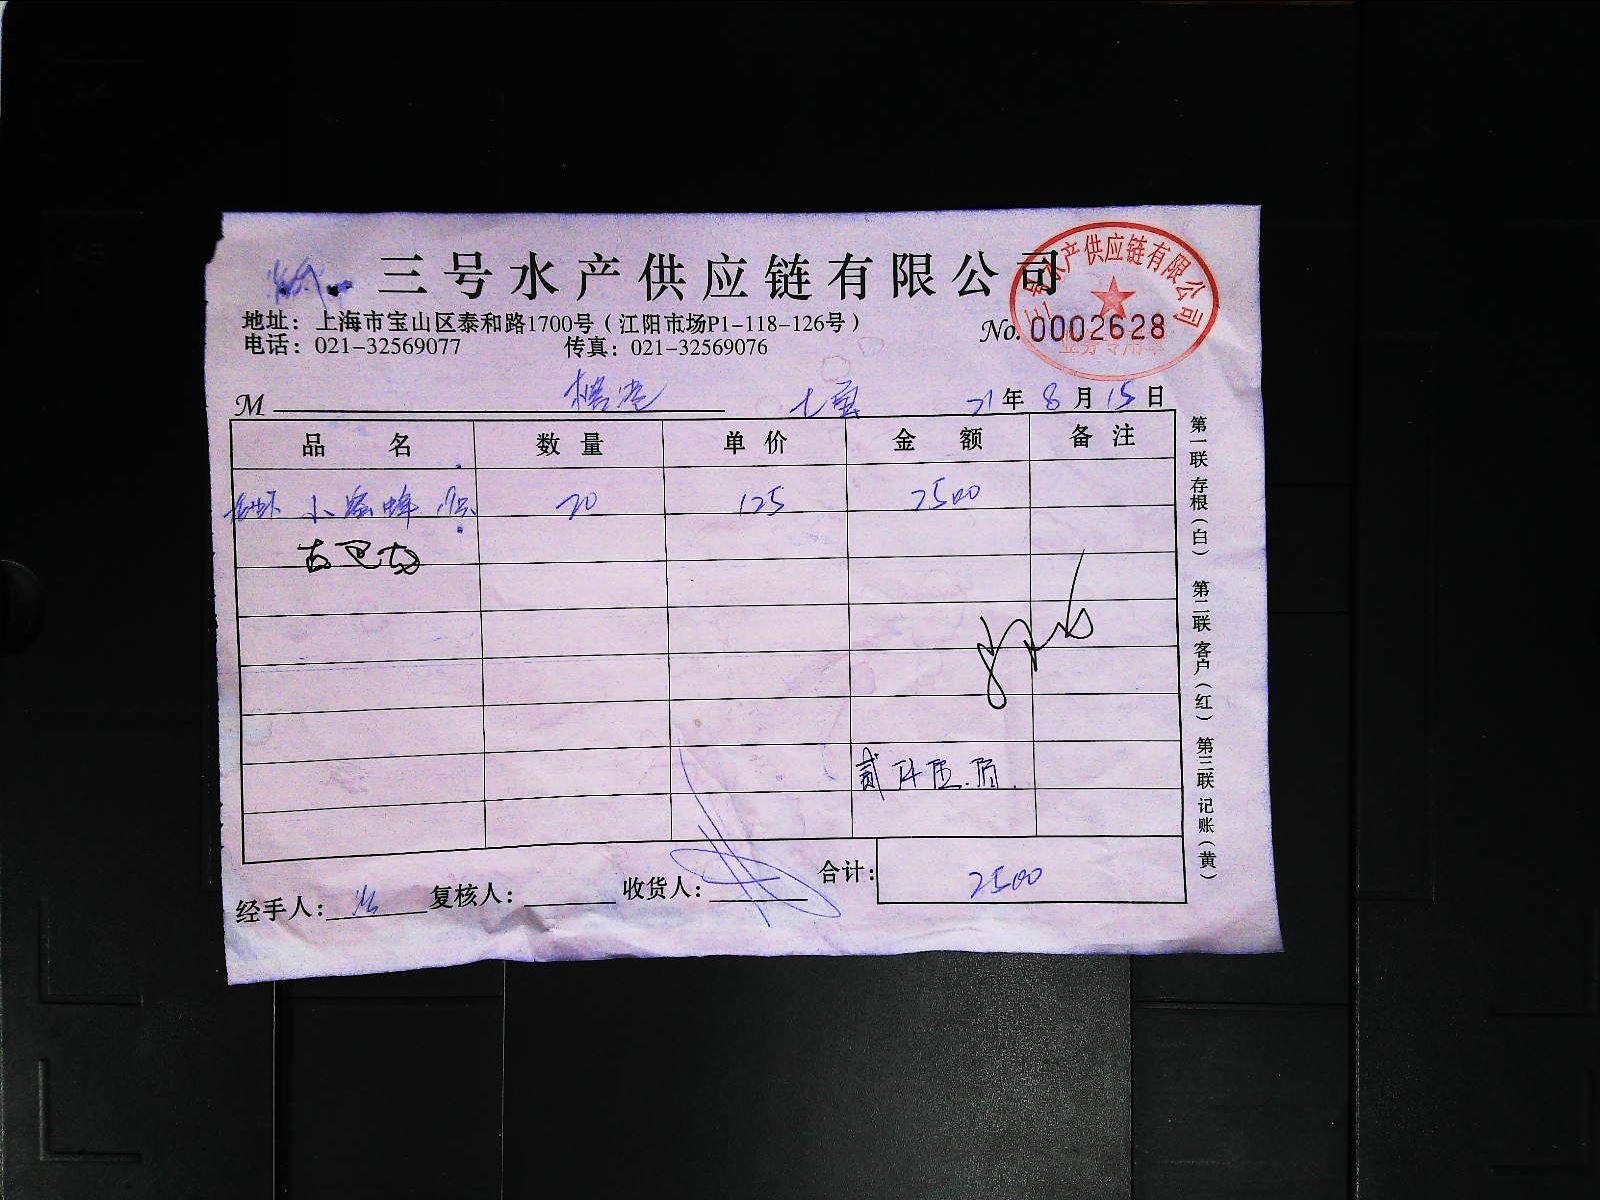 三号水产供应链有限公司
地址：上海市宝山区泰和路1700号（江阳市场P1-118-126号）
电话：021-32569077 传真：021-32569076
No. 0002628
三号水产供应链有限公司
业务专用章
M 21年8月15日
品名 数量 单价 金额 备注
小蜜蜂 20 125 2500
贰仟伍佰
合计： 2500
经手人： 复核人： 收货人：
第一联存根（白） 第二联客户（红） 第三联记账（黄）